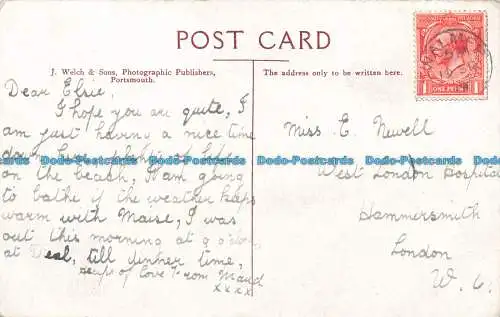 POST CARD
J. Welch & Sons, Photographic Publishers,
Portsmouth.
The address only to be written here.
Dear Elsie,
I hope you are quite, I
am just having a nice time
down here, plenty of life
on the beach, I am going
to bathe if the weather keeps
warm with Maise, I was
out this morning at 9 o'clock
at Deal, till dinner time,
heaps of love from Maud
xxxx
Miss E. Newell
West London Hospital
Hammersmith
London
W. 6.
ONE PENNY
1 1
Dodo-Postcards Dodo-Postcards Dodo-Postcards Dodo-Postcards
Dodo-Postcards Dodo-Postcards Dodo-Postcards Dodo-Postcards